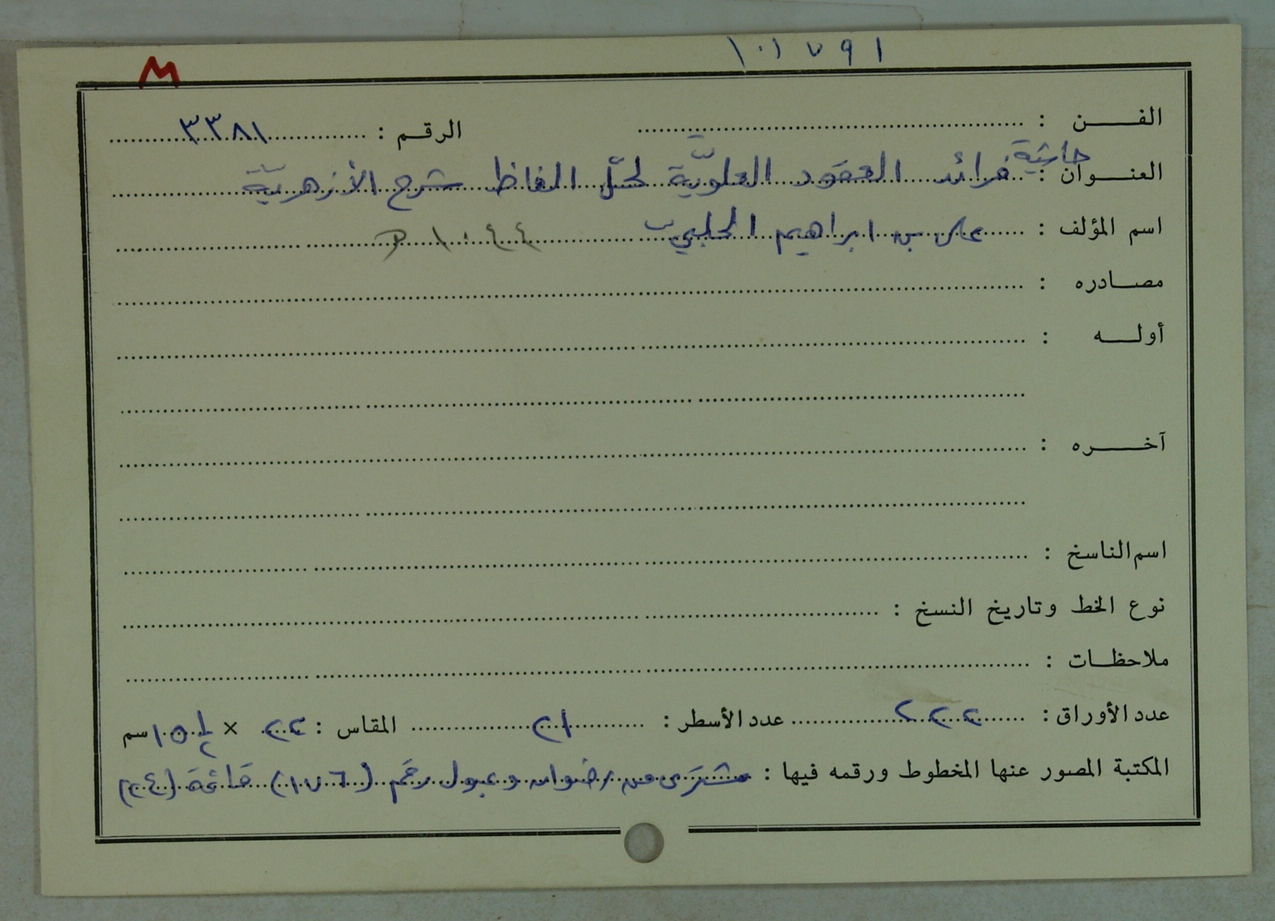 ١٠١٧٩١
M
الفـن : الرقـم : ٣٣٨١
العنـوان : حاشية فرائد العقود العلويّة لحلّ الفاظ شرح الأزهريّة
اسم المؤلف : علي بن ابراهيم الحلبي ١٠٤٤ هـ
مصـادره :
أولـه :
آخـره :
اسم الناسخ :
نوع الخط وتاريخ النسخ :
ملاحظـات :
عدد الأوراق : ٢٢٢ عدد الأسطر : ٢١ المقاس : ٢٢ × ١٥ ١/٢ سم
المكتبة المصور عنها المخطوط ورقمه فيها : مشترى من رضوان دعبول رقم (١٧٦) قائمة (٢٤)